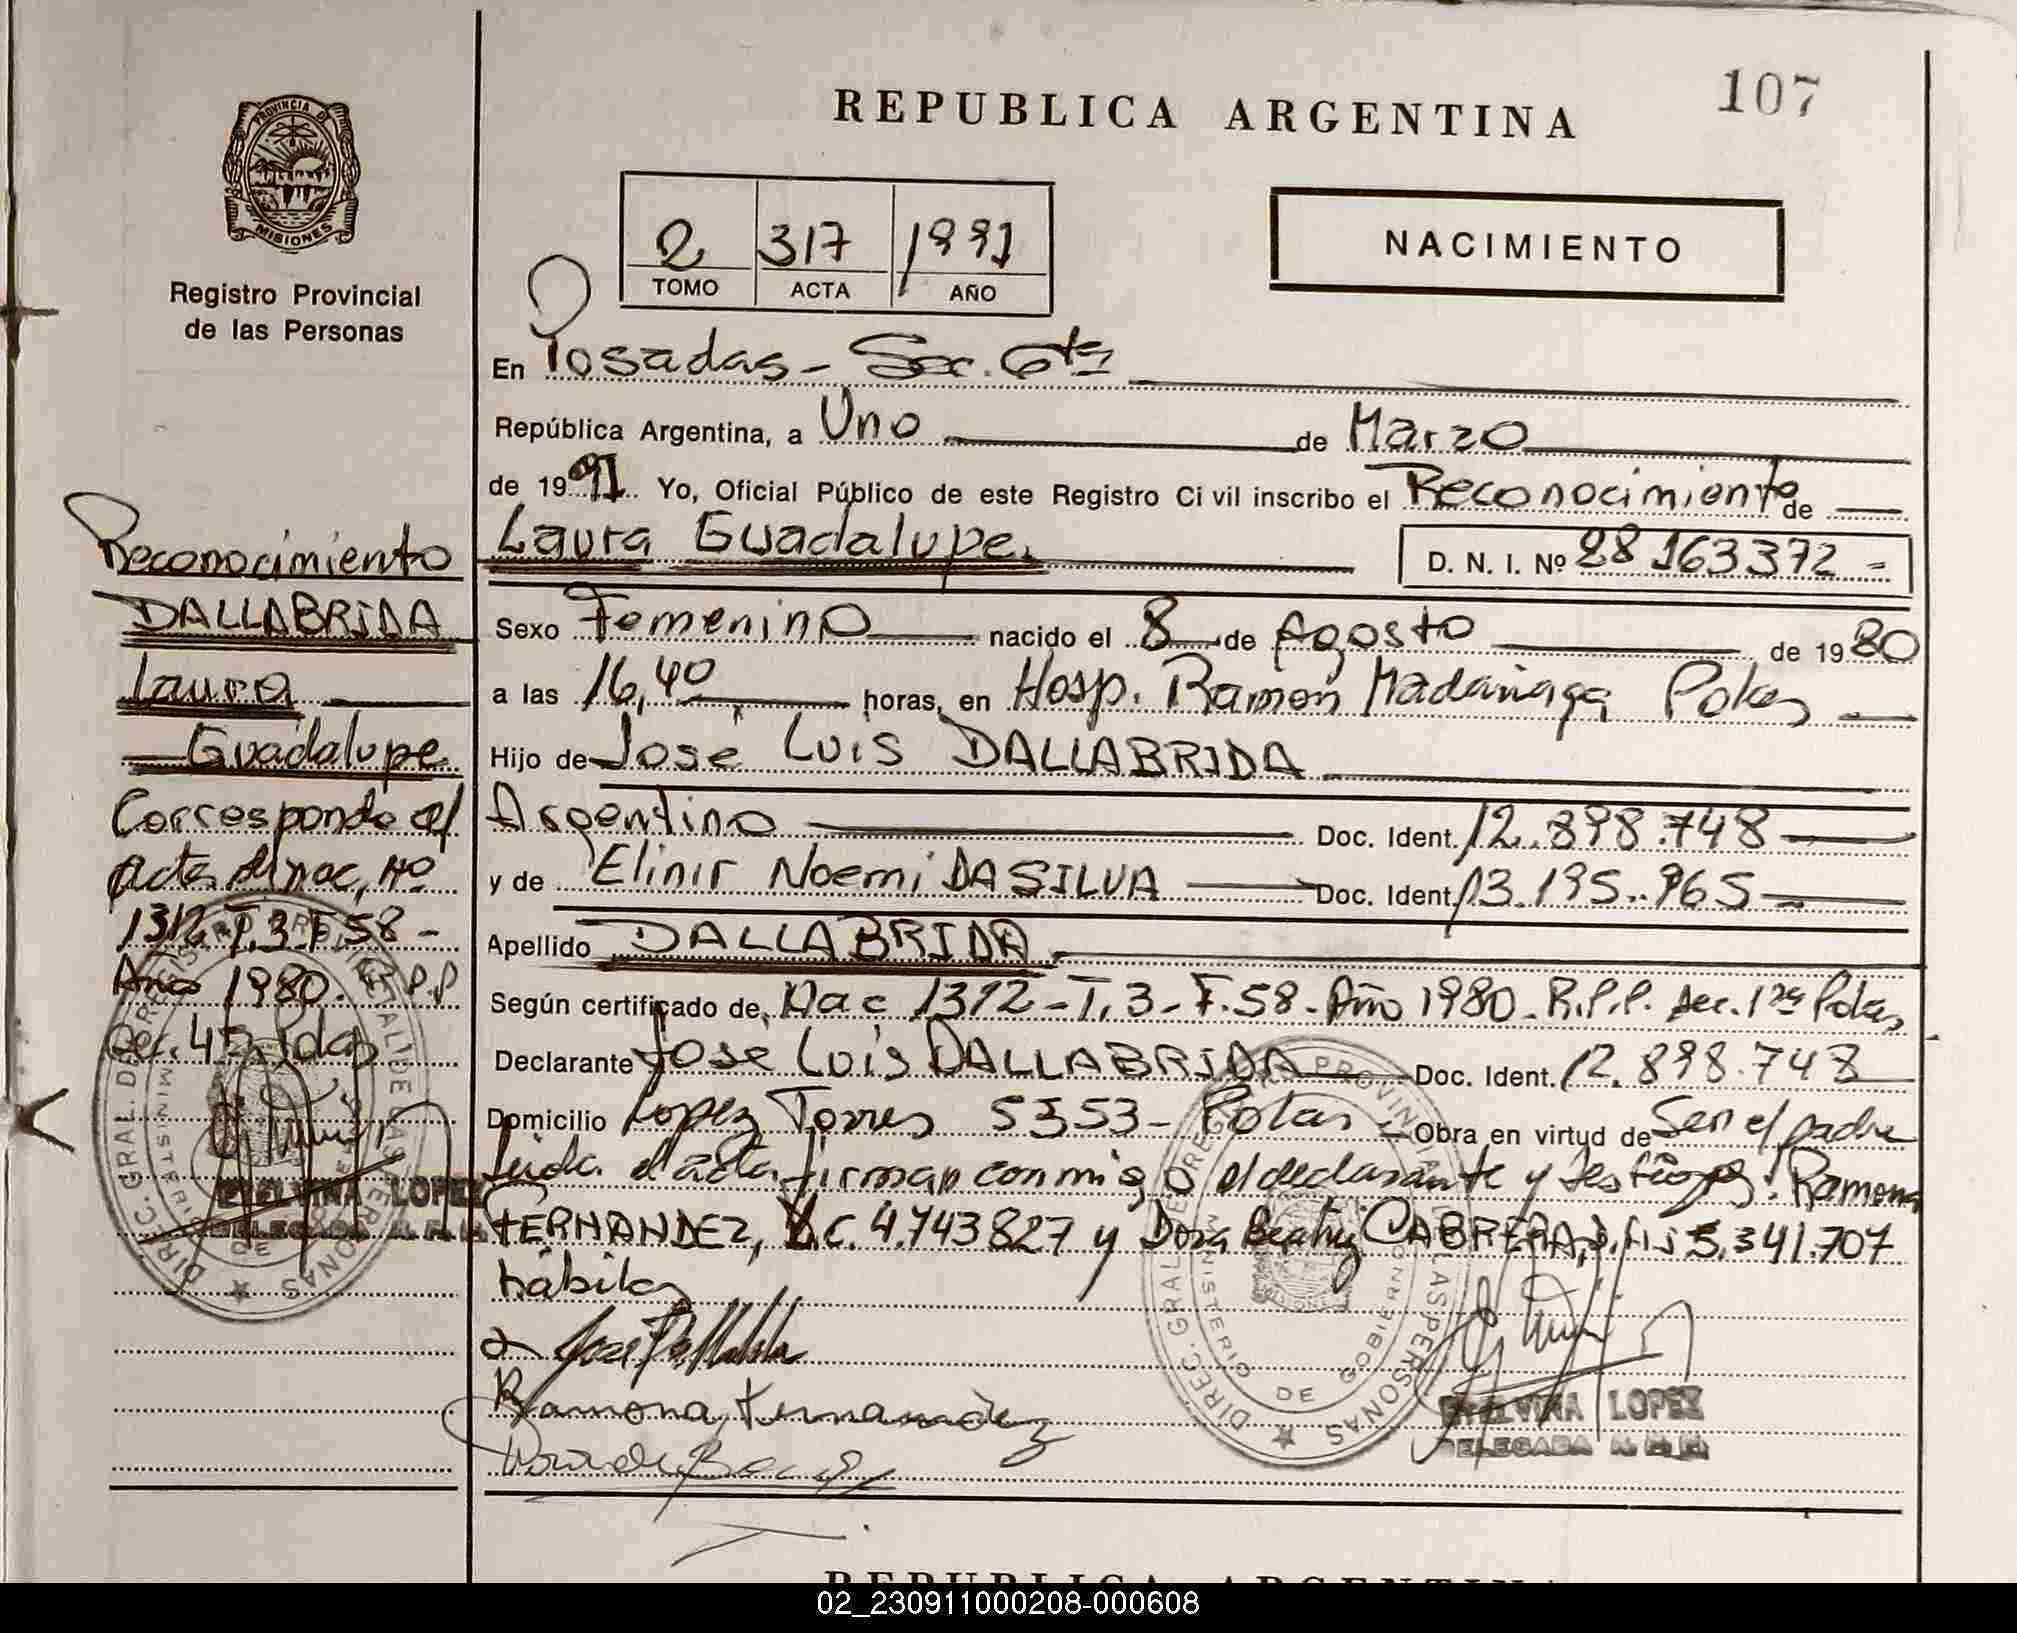 107
REPUBLICA ARGENTINA
PROVINCIA DE
MISIONES
Registro Provincial
de las Personas
2 317 1991
TOMO ACTA AÑO
NACIMIENTO
En Posadas - Sec. 6ta
República Argentina, a Uno de Marzo
de 1991 Yo, Oficial Público de este Registro Civil inscribo el Reconocimiento de
Laura Guadalupe. D. N. I. Nº 28 163372 -
Sexo Femenino nacido el 8 de Agosto de 1980
a las 16,40 horas, en Hosp. Ramon Madariaga Pdas
Hijo de José Luis DALLABRIDA
Argentino Doc. Ident. 12.898.748
y de Elinir Noemi DA SILVA Doc. Ident. 13.195.965
Apellido DALLABRIDA
Según certificado de Nac 1312 - T. 3 - F. 58 - Año 1980 - R.P.P. Sec. 1ra Pdas
Declarante Jose Luis DALLABRIDA Doc. Ident. 12.898.748
Domicilio Lopez Torres 5353 - Pdas - Obra en virtud de Ser el padre
Leida el acta firman conmigo el declarante y testigos: Ramona
FERNANDEZ, L.C. 4.743827 y Dora Beatriz CABRERA, D.N.I 5.341.707
hábiles
Jose Dallabrida
Ramona Fernandez
ETELVINA LOPEZ
DELEGADA
Reconocimiento
DALLABRIDA
Laura
Guadalupe
Corresponde al
Acta de nac, Nº
1312 T. 3 F 58 -
Año 1980. R.P.P
Sec. Pdas
ETELVINA LOPEZ
DELEGADA
DIREC. GRAL. DE REGISTRO PROVINCIAL DE LAS PERSONAS
MINISTERIO DE GOBIERNO
DIREC. GRAL. DE REGISTRO PROVINCIAL DE LAS PERSONAS
MINISTERIO DE GOBIERNO
REPUBLICA ARGENTINA
02_230911000208-000608